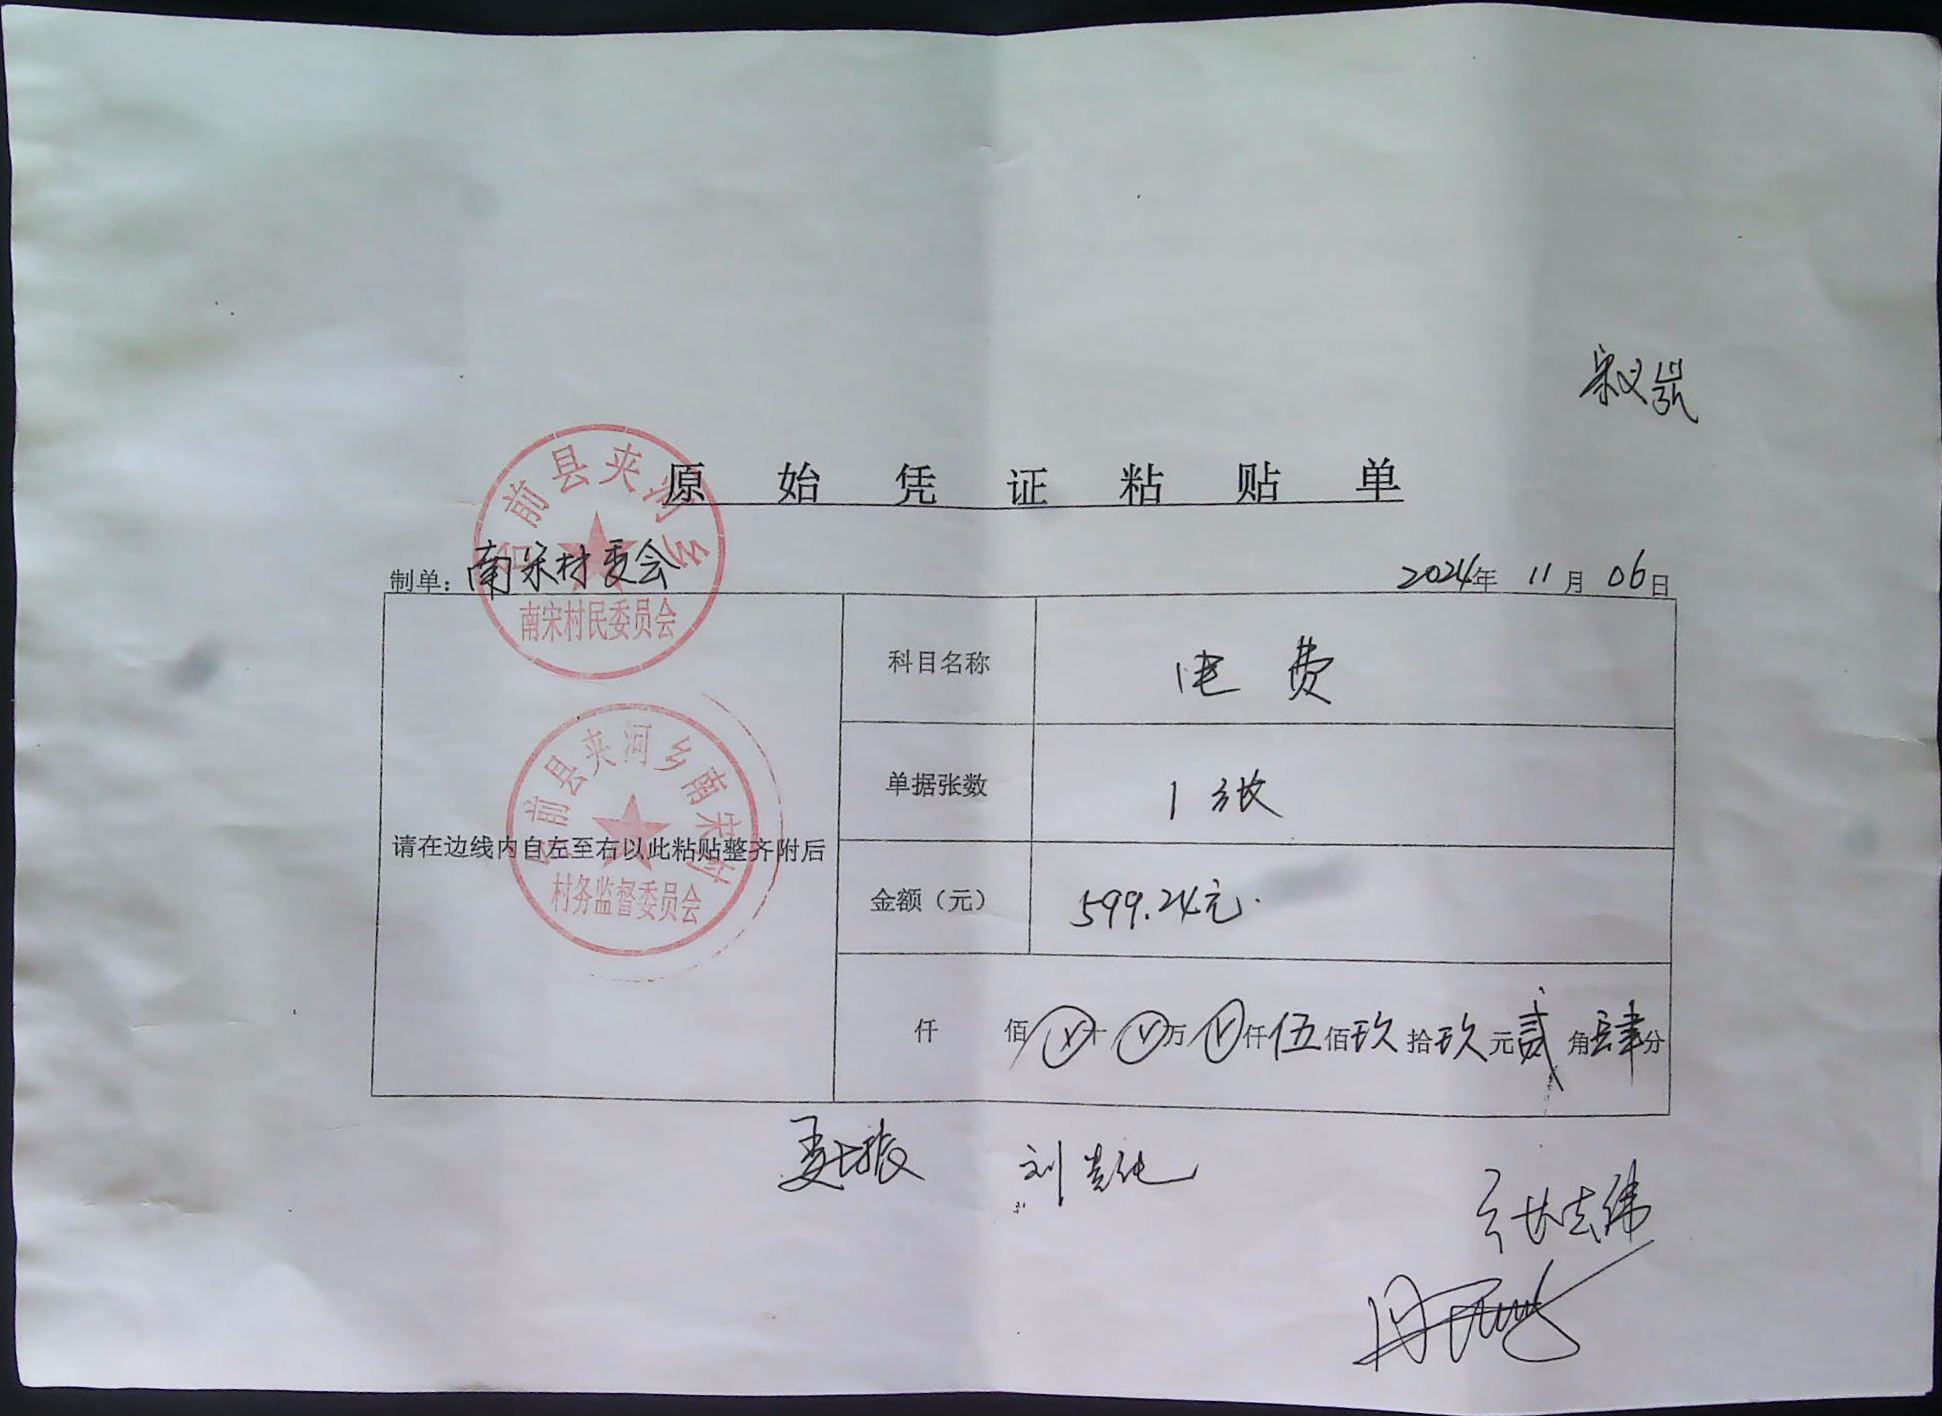 原始凭证粘贴单
制单：南宋村委会 2024年 11月 06日
前县夹河乡
南宋村民委员会
科目名称 电费
单据张数 1张
前县夹河乡南宋村
村务监督委员会
请在边线内自左至右以此粘贴整齐附后
金额（元） 599.24元.
仟 佰 十 万 仟伍佰玖拾玖元贰角肆分
张志伟